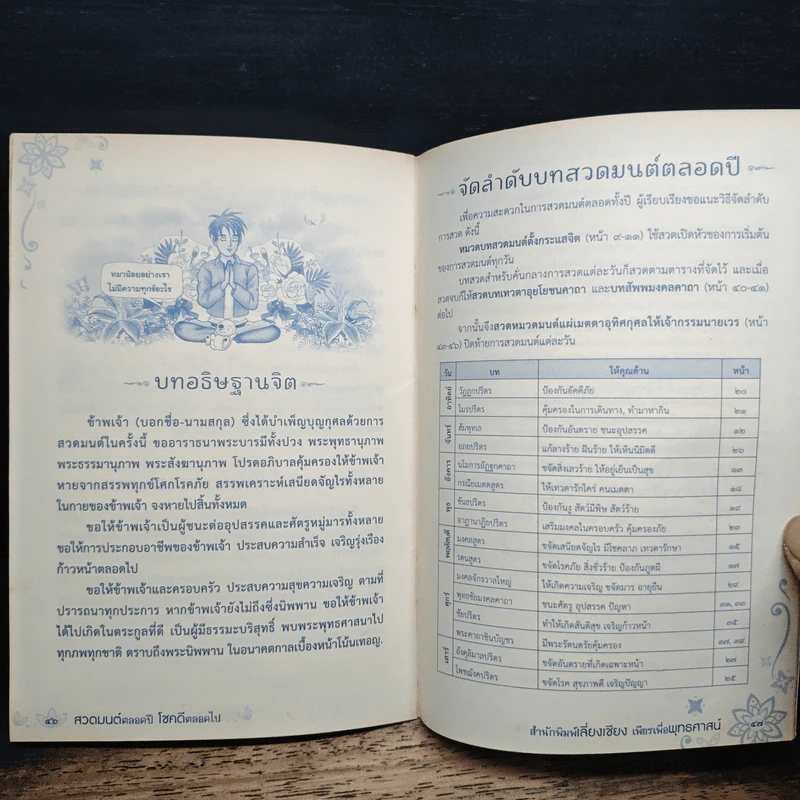 หมาน้อยอย่างเรา
ไม่มีความทุกข์อะไร
บทอธิษฐานจิต
ข้าพเจ้า (บอกชื่อ-นามสกุล) ซึ่งได้บำเพ็ญบุญกุศลด้วยการ
สวดมนต์ในครั้งนี้ ขออาราธนาพระบารมีทั้งปวง พระพุทธานุภาพ
พระธรรมานุภาพ พระสังฆานุภาพ โปรดอภิบาลคุ้มครองให้ข้าพเจ้า
หายจากสรรพทุกข์โศกโรคภัย สรรพเคราะห์เสนียดจัญไรทั้งหลาย
ในกายของข้าพเจ้า จงหายไปสิ้นทั้งหมด
ขอให้ข้าพเจ้าเป็นผู้ชนะต่ออุปสรรคและศัตรูหมู่มารทั้งหลาย
ขอให้การประกอบอาชีพของข้าพเจ้า ประสบความสำเร็จ เจริญรุ่งเรือง
ก้าวหน้าตลอดไป
ขอให้ข้าพเจ้าและครอบครัว ประสบความสุขความเจริญ ตามที่
ปรารถนาทุกประการ หากข้าพเจ้ายังไม่ถึงซึ่งนิพพาน ขอให้ข้าพเจ้า
ได้ไปเกิดในตระกูลที่ดี เป็นผู้มีธรรมะบริสุทธิ์ พบพระพุทธศาสนาไป
ทุกภพทุกชาติ ตราบถึงพระนิพพาน ในอนาคตกาลเบื้องหน้าโน้นเทอญ.
๔๖ สวดมนต์ตลอดปี โชคดีตลอดไป
จัดลำดับบทสวดมนต์ตลอดปี
เพื่อความสะดวกในการสวดมนต์ตลอดทั้งปี ผู้เรียบเรียงขอแนะวิธีจัดลำดับ
การสวด ดังนี้
หมวดบทสวดมนต์ตั้งกระแสจิต (หน้า ๙-๑๑) ใช้สวดเปิดหัวของการเริ่มต้น
ของการสวดมนต์ทุกวัน
บทสวดสำหรับคั่นกลางการสวดแต่ละวันก็สวดตามตารางที่จัดไว้ และเมื่อ
สวดจบก็ให้สวดบทเทวตาอุยโยชนคาถา และบทสัพพมงคลคาถา (หน้า ๔๐-๔๑)
ต่อไป
จากนั้นจึงสวดหมวดมนต์แผ่เมตตาอุทิศกุศลให้เจ้ากรรมนายเวร (หน้า
๔๓-๔๖) ปิดท้ายการสวดมนต์แต่ละวัน
วัน บท ให้คุณด้าน หน้า
อาทิตย์ วัฏฏกปริตร ป้องกันอัคคีภัย ๒๐
โมรปริตร คุ้มครองในการเดินทาง, ทำมาหากิน ๒๑
จันทร์ สัมพุทเธ ป้องกันอันตราย ชนะอุปสรรค ๑๒
อภยปริตร แก้ลางร้าย ฝันร้าย ให้เห็นนิมิตดี ๒๖
อังคาร นโมการอัฏฐกคาถา ขจัดสิ่งเลวร้าย ให้อยู่เย็นเป็นสุข ๑๓
กรณียเมตตสูตร ให้เทวดารักใคร่ คนเมตตา ๑๘
พุธ ขันธปริตร ป้องกันงู สัตว์มีพิษ สัตว์ร้าย ๑๙
อาฏานาฏิยปริตร เสริมมงคลในครอบครัว คุ้มครองภัย ๒๓
พฤหัสบดี มงคลสูตร ขจัดเสนียดจัญไร มีโชคลาภ เทวดารักษา ๑๕
รตนสูตร ขจัดโรคภัย สิ่งชั่วร้าย ป้องกันภูตผี ๑๗
ศุกร์ มงคลจักรวาลใหญ่ ให้เกิดความเจริญ ขจัดมาร อายุยืน ๒๙
พุทธชัยมงคลคาถา ชนะศัตรู อุปสรรค ปัญหา ๓๑, ๓๓
ชัยปริตร ทำให้เกิดสันติสุข เจริญก้าวหน้า ๓๕
เสาร์ พระคาถาชินบัญชร มีพระรัตนตรัยคุ้มครอง ๓๗, ๓๙
อังคุลิมาลปริตร ขจัดอันตรายที่เกิดเฉพาะหน้า ๒๗
โพชฌังคปริตร ขจัดโรค สุขภาพดี เจริญปัญญา ๒๕
สำนักพิมพ์เลี่ยงเชียง เพียรเพื่อพุทธศาสน์ ๔๗